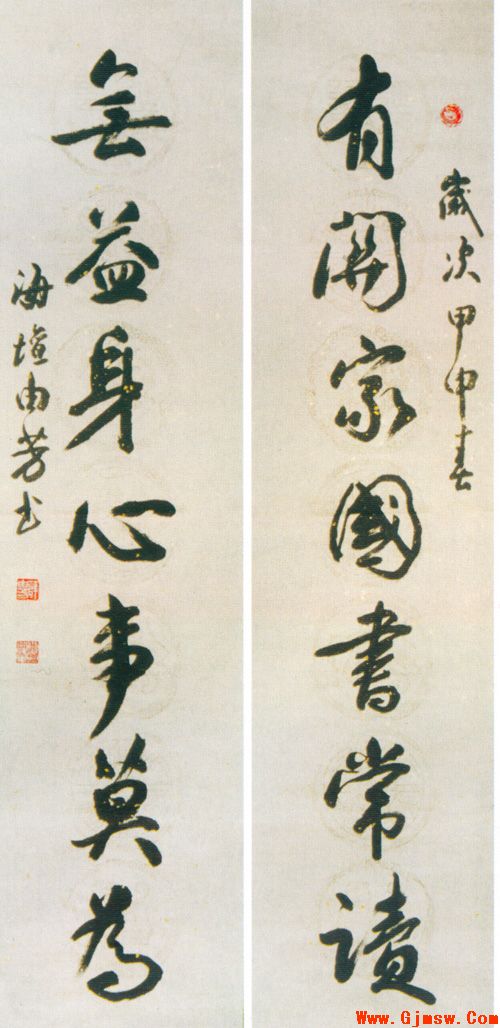 歲次甲申春
有關家國書常讀
無益身心事莫為
海壇由芳書
Www.Gjmsw.Com